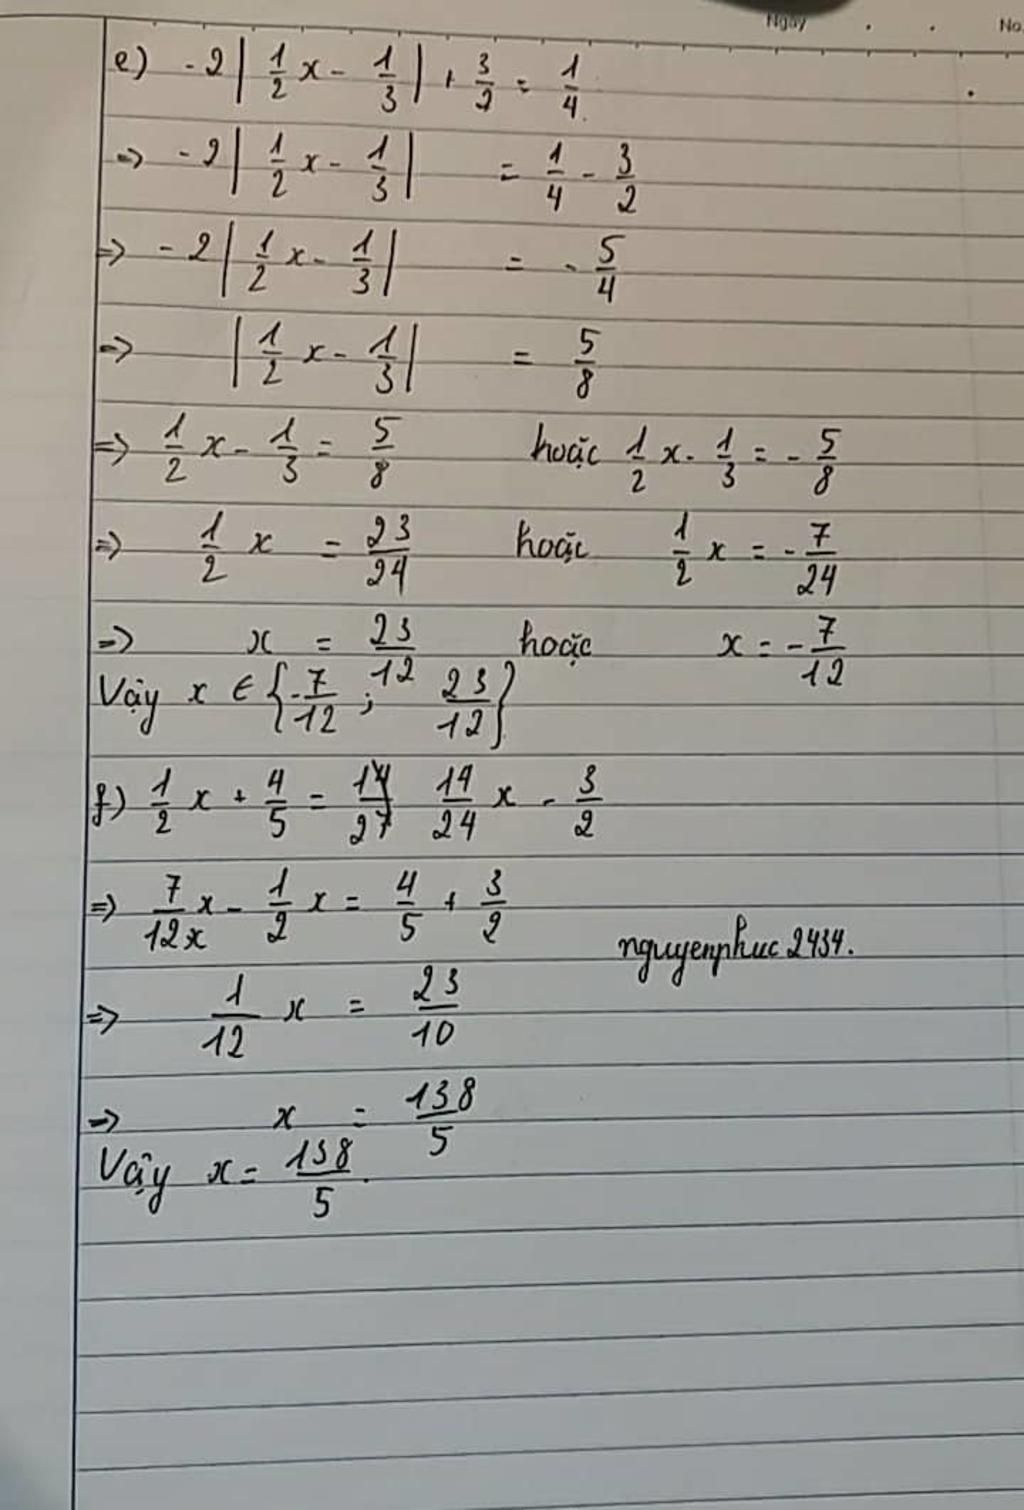 Ngày . . No.
e) -2|1/2 x - 1/3| + 3/2 = 1/4
=> -2|1/2 x - 1/3| = 1/4 - 3/2
=> -2|1/2 x - 1/3| = -5/4
=> |1/2 x - 1/3| = 5/8
=> 1/2 x - 1/3 = 5/8 hoặc 1/2 x - 1/3 = -5/8
=> 1/2 x = 23/24 hoặc 1/2 x = -7/24
=> x = 23/12 hoặc x = -7/12
Vậy x ∈ {-7/12 ; 23/12}
f) 1/2 x + 4/5 = 14/24 x - 3/2
=> 7/12x x - 1/2 x = 4/5 + 3/2
nguyenphuc2434.
=> 1/12 x = 23/10
=> x = 138/5
Vậy x = 138/5.